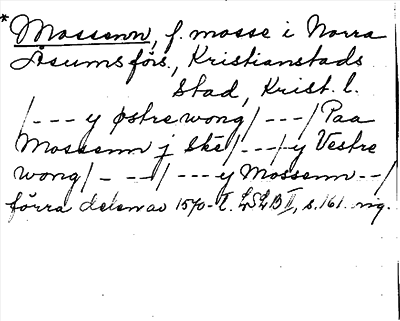 * Mossenn, f. mosse i Norra
Åsums förs., Kristianstads
Stad, Krist. l.
/--- y østre wong/---/ Paa
Mossenn j Ske/---/y Vestre
wong/- --/ ---y Mossenn --/
förra delen av 1570-t. LSLB II, s. 161.